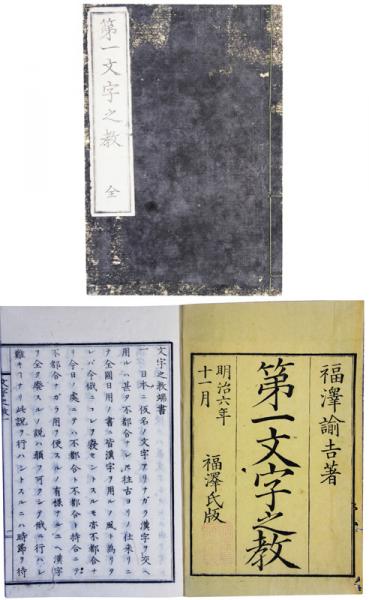 第一文字之教
全
福澤諭吉著
第一文字之教
明治六年
十一月
福澤氏版
文字之教端書
一 日本ニ仮名ノ文字アリナガラ漢字ヲ交ヘ
用ルハ甚タ不都合ナレ𪜈往古ヨリノ仕来リニ
テ全國日用ノ書ニ皆漢字ヲ用ルノ風ト為リタ
レバ今俄ニコレヲ廢セントスルモ亦不都合ナ
リ今日ノ處ニテハ不都合ト不都合ト持合ニテ
不都合ナガラ用ヲ便スルノ有様ナルユヘ漢字
ヲ全ク廢スルノ説ハ願フ可クシテ俄ニ行ハレ
難キヿナリ此説ヲ行ハントスルニハ時節ヲ待
文字之教